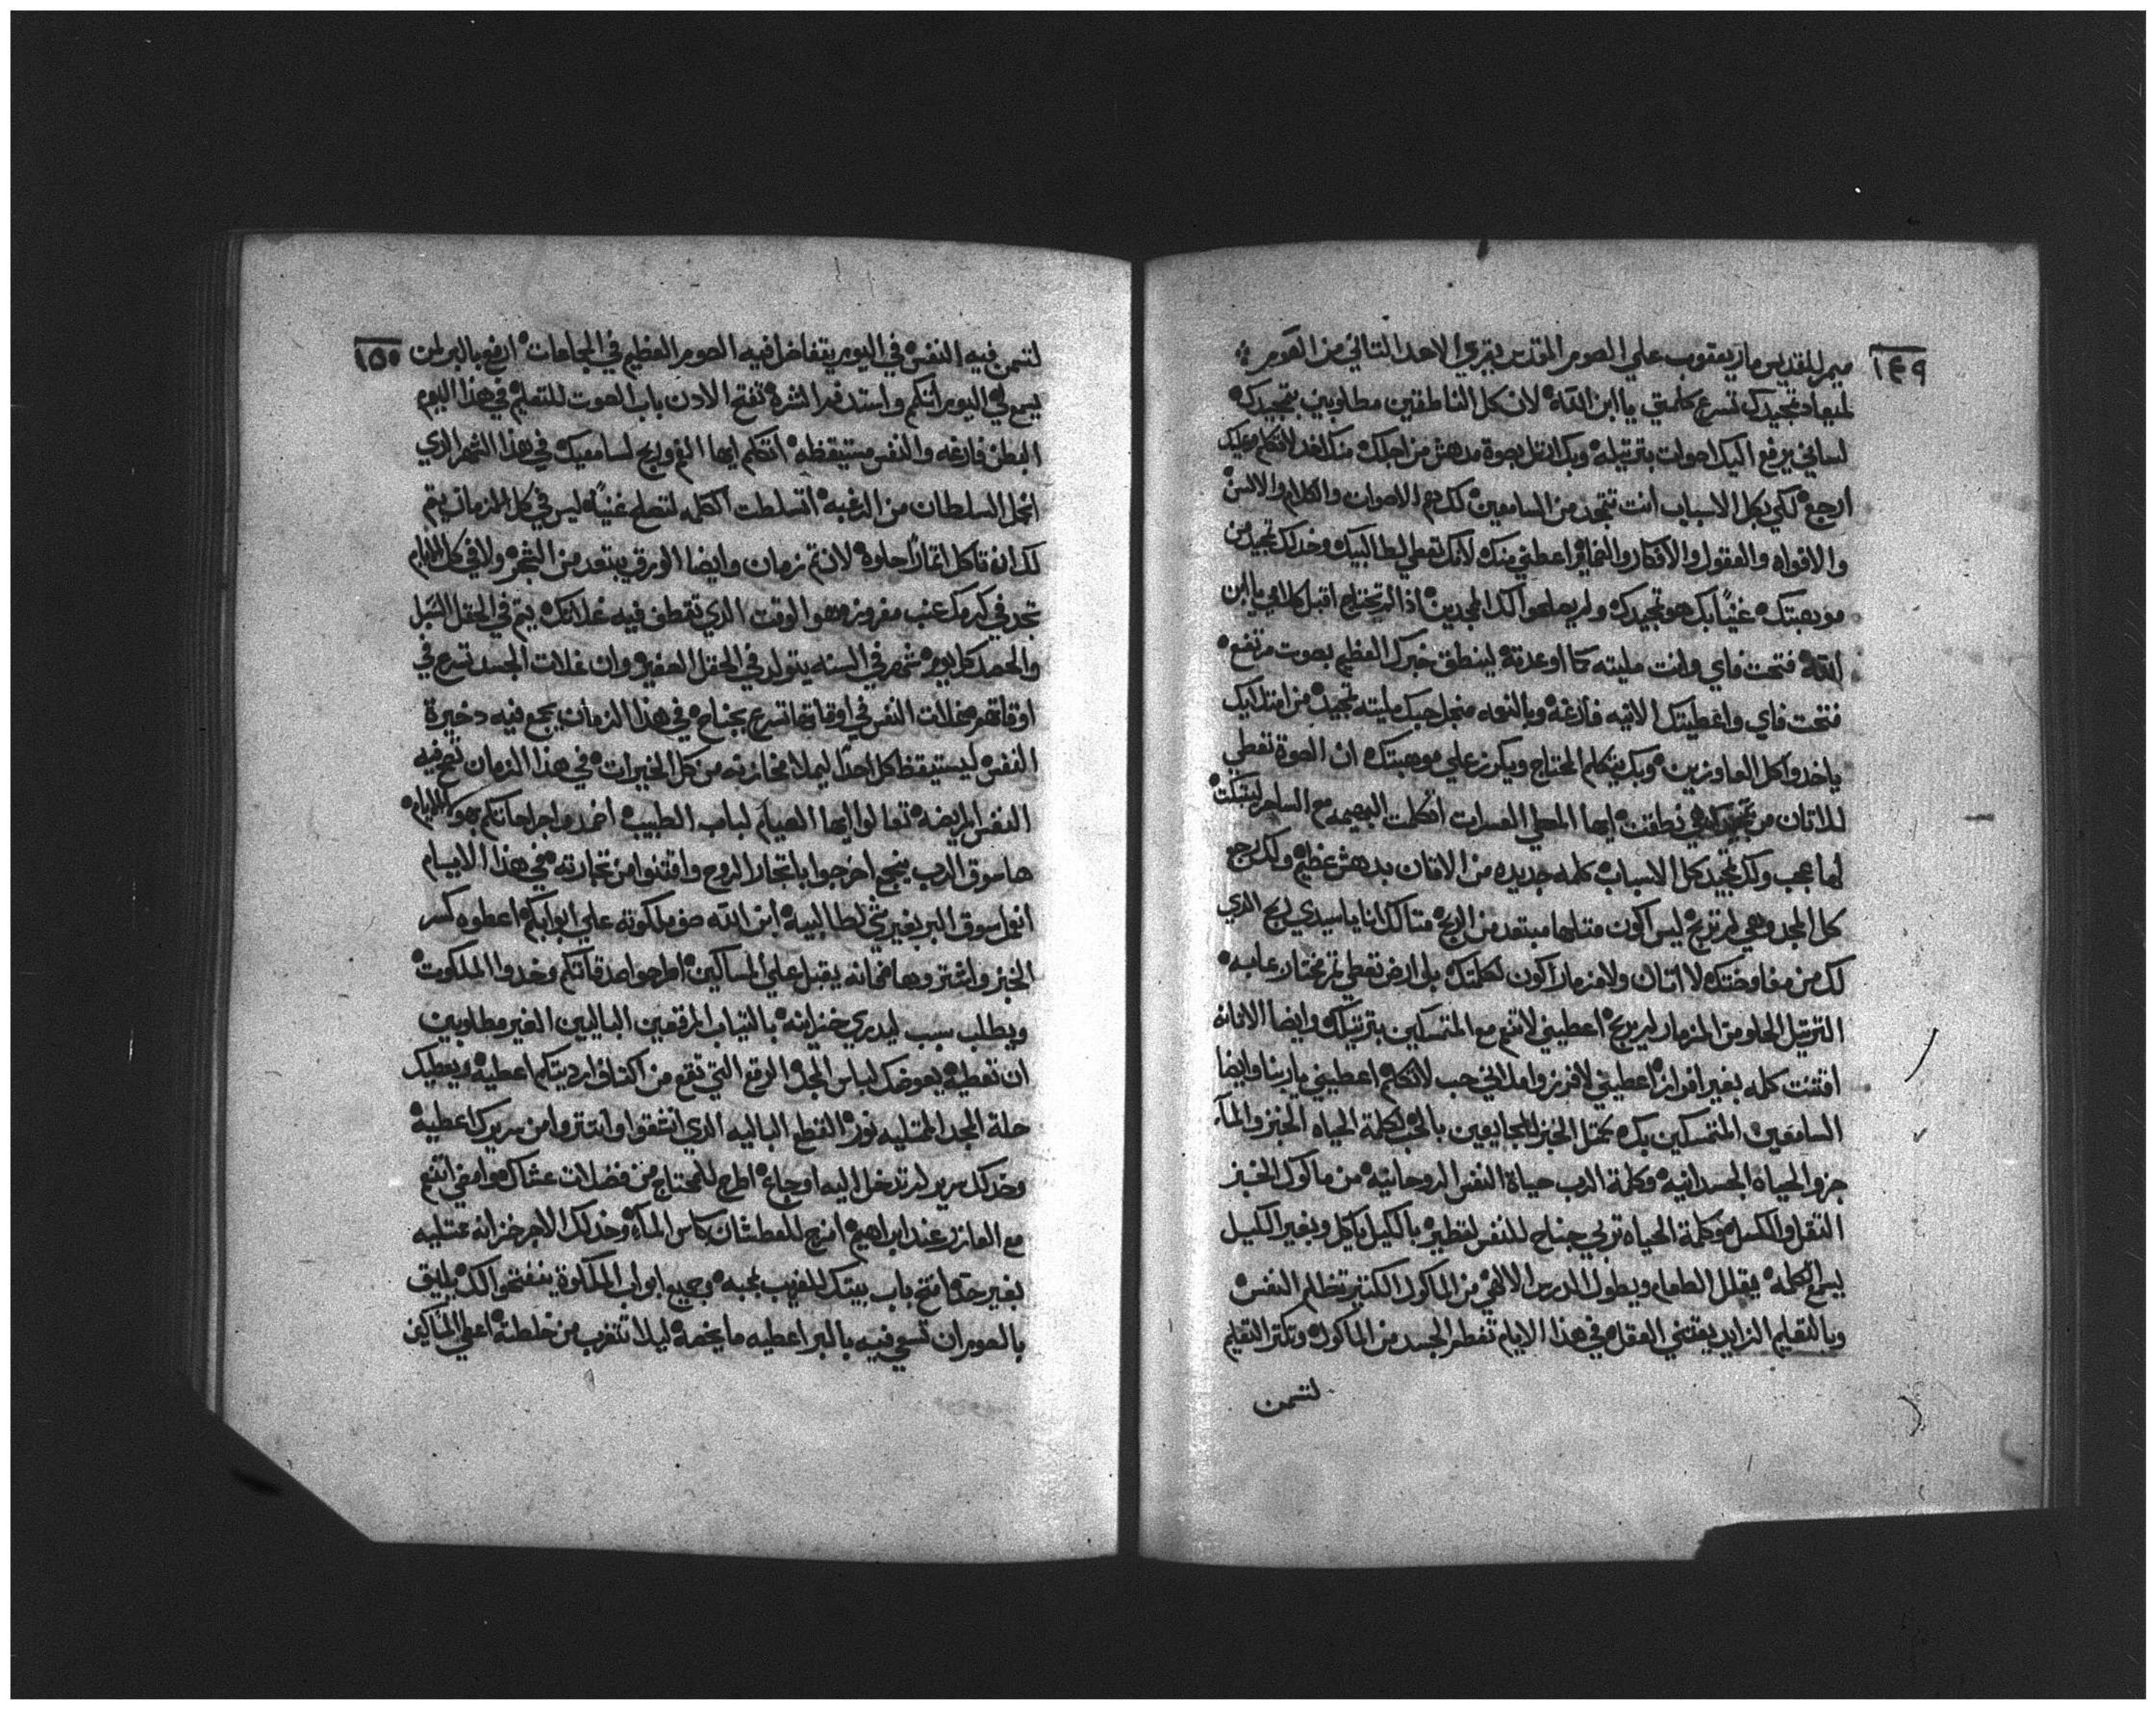 ١٤٩
ميمر للقديس ماري يعقوب علي الصوم المقدس يقري الاحد التاني من الصوم
لميعاد تمجيدك تسرع كلمتي يا ابن الله لان كل الناطقين مطلوبين بتمجيدك
لساني يرفع اليك اصوات بترتيله وبك ارتل بصوة مدهش من اجلك منك اخد لاتكلم عليك
ارجع لكي بكل الاسباب انت تتمجد من السامعين لك دم الاصوات والكلام والالسن
والافواه والعقول والافكار والضماير اعطيني منك لانك تعطي لطالبيك وخد لك تمجيد من
موهبتك غنيا بك هو تمجيدك ولم يصلحوا لك الممجدين اذا لم تحتاج اقبل كلامي يا ابن
الله فتحت فاي وانت مليته كما اوعدته لينطق خبرك العظيم بصوت مرتفع
فتحت فاي واعطيتك الانيه فارغه وبالنعمه من جل حبك مليته تمجيد من امتد اليك
ياخدوا كل العاوزين وبك يتكلم المحتاج ويكرز علي موهبتك ان الصوة تعطي
للاتان من نطقت ايها المعطي المسرات اتكلمت البهيمه مع الساحر ليتبكت
لها عجب ولك تمجيد بكل الاسباب كلمه جديده من الاتان بدهش عظيم ولك رجع
كل المجد وهي لم تربح ليس اكون متلها مبتعد من الربح متالك انا يا سيدي لربح الدي
لك من مفاوضتك لا اتان ولا مزمار اكون لكلمتك بل ارض تعطي تمر مختار عابه
الترتيل الحلو من المزمار لم يربح اعطيني لاتنعم مع المتمسكين بترتيلك وايضا الاتانه
اقتنت كله بغير افراز اعطيني لافرز وامداني حب لاتكلم اعطيني يا ربنا وايضا
السامعين المتمسكين بك بمتل الخبز للجايعين بالحب لكلمة الحياه الخبز والماء
جزو الحياه الجسدانيه وكلمة الرب حياة النفس الروحانيه من ماكول الخبز
التقل والكسل وكلمة الحياه تربي جناح للنفس لتطير بالكيل ياكل وبغير الكيل
يسمع الكلمه يقلل الطعام ويطول الدرس الالاهي من الماكول الكتير تظلم النفس
وبالتعليم الزايد يقتني العقل في هذا الايام تفطر الجسد من الماكول وتكتر التعليم
لتسمن
١٥٠
لتسمن فيه النفس في اليوم يتفاضل فيه الصوم العظيم في المجاعات ارفع بالبر لمن
يسمع لي اليوم اتكلم واستد فم الشره تفتح الادن باب الصوت للتعليم في هذا اليوم
البطن فارغه والنفس مستيقظه اتكلم ايها الفم واربح لسامعيك في هذا الشهر الدي
انحل السلطان من الرغبه اتسلطت الكلمه لتصلح غنيا ليس في كل الازمان يتم
لك ان تاكل اتمارا حلوه لان تم زمان وايضا الورق يبتعد من الشجر ولا في كل الايام
تجد في كرمك عنب مفروز وهو الوقت الدي تقطف فيه غلاتك يتم في الحقل السبل
والحصد كل يوم شهر في السنه يتولد في الحقل الصغير وان غلات الجسد تسرع في
اوقاتهم غلات النفس في اوقاتها تسرع بجناح في هذا الزمان يجمع فيه دخيرة
النفس ليستيقظ كل احدا ليملا مخازنه من كل الخيرات في هذا الزمان تصح فيه
النفس المريضه تعالوا ايها الصيام لباب الطبيب اضمدوا جراحاتكم بهو الايام
ها سوق الرب ينجع اخرجوا يا تجار الروح واقتنوا من تجارته في هذا الايام
انحل سوق البر بغير شي لطالبيه ابن الله صف ملكوته علي ابوابكم اعطوه كسر
الخبز واشتروها مجانه يقبل علي المساكين اطرحوا صدقاتكم وخدوا الملكوت
ويطلب سبب ليدري خزاينه بالتياب المرقعين الباليين الغير مطلوبين
ان تعطيه يعوضك لباس المجد الرقع التي تقع من اكتاف ارديتكم اعطيه ويعطيك
حلة المجد الممتليه نور القطع الباليه الدي انتفقوا وانتتروا من سريرك اعطيه
وخد لك سرير لم تدخل اليه اوجاع اطرح للمحتاج من فضلات عشاك وامضي اتنعم
مع العازر عند ابراهيم امزج للعطشان كاس الماء وخد لك الاجر خزانه ممتليه
بغير حد افتح باب بيتك للغريب بمحبه وجميع ابواب الملكوة ينفتحوا لك يليق
بالصوم ان تسمي فيه بالبر اعطيه ما يخصه ليلا تتغرب من خلطته اعطي المساكين